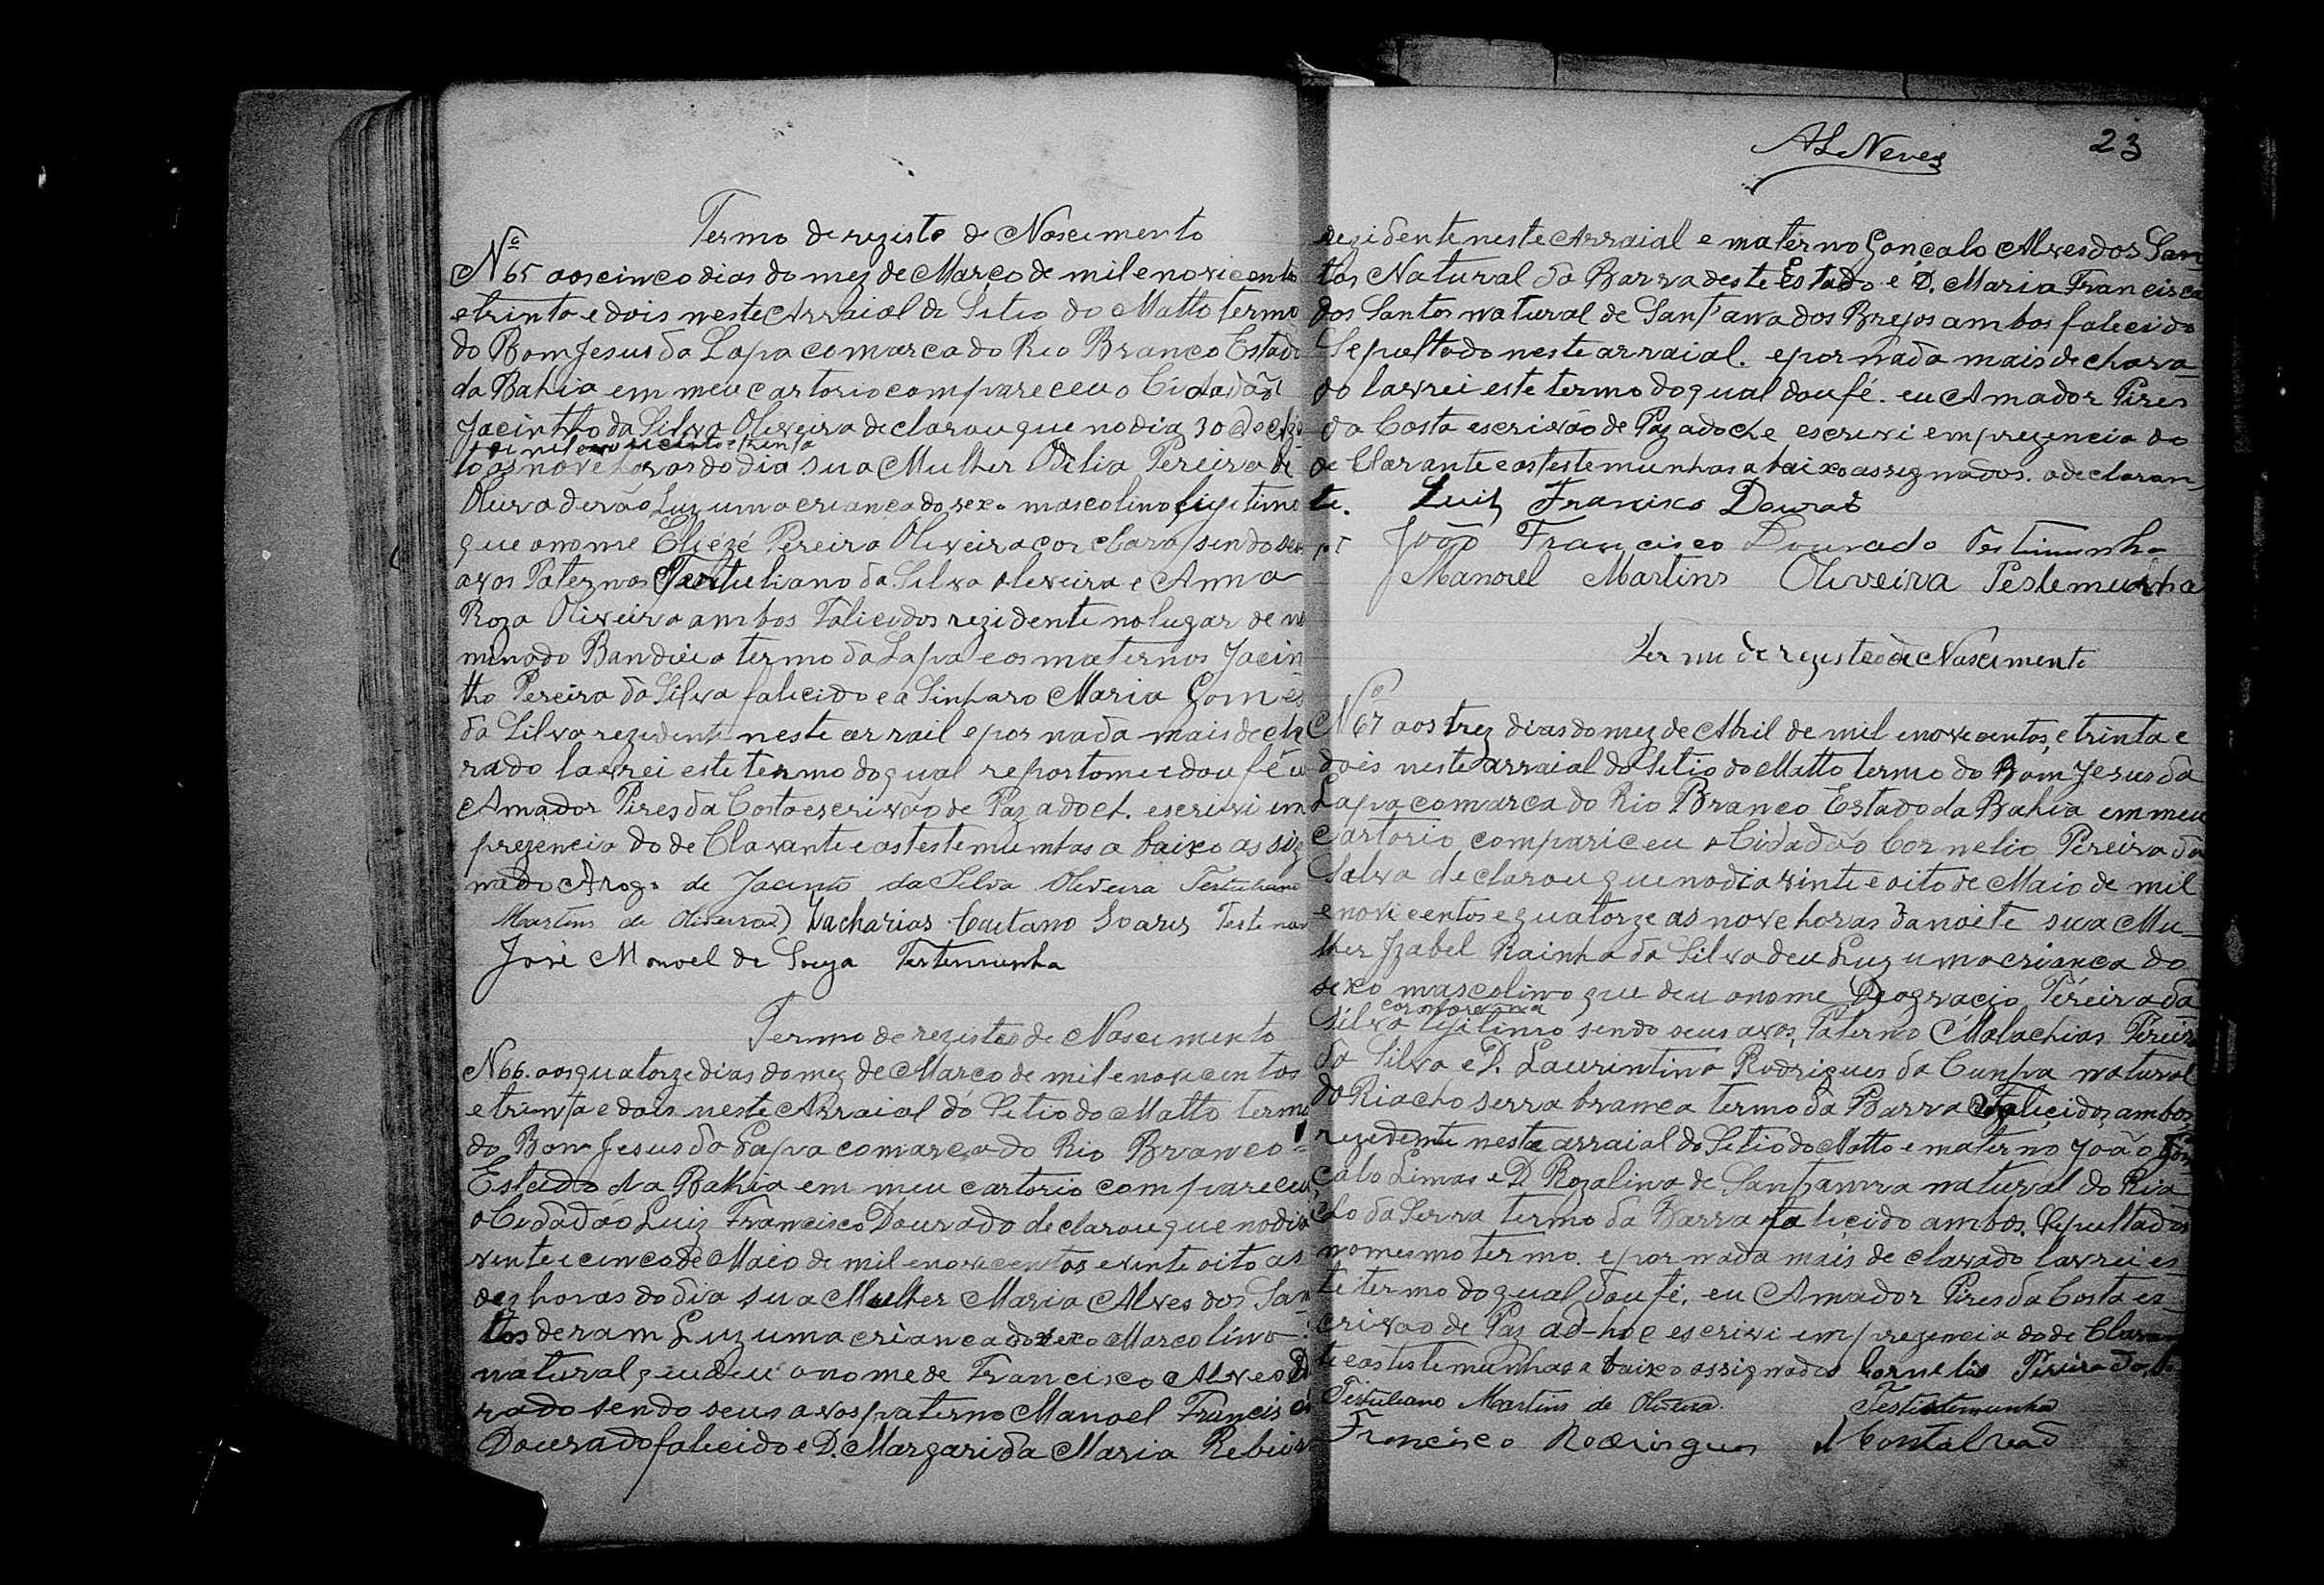 Termo de registo de Nascimento
Nº 65 aos cinco dias do mez de Março de mil e novicento
e trinta e dois neste Arraial de Sitio do Matto termo
do Bom Jesus da Lapa comarca do Rio Branco Estado
da Bahia em meu cartorio compareceu o Cidadão
Jacintho da Silva Oliveira declarou que no dia 30 de
de mil e novicentos e trinta
as nove horas do dia sua Mulher Odilia Pereira de
Oliura derão Luz uma criança do sexo mascolino
que o nome Eliézé Pereira Oliveira cor clara sendo seu
avos Paternos Tertuliano da Silva Oliveira e Anna
Roza Oliveira ambos Falicidos rezidente no lugar de no
minado termo da Lapa e os maternos Jacin
tho Pereira da Silva falicido e a Sinhara Maria Gomes
da Silva rezidente neste arrail e por nada mais decla
rado lavrei este termo do qual reportome e dou fé eu
Amador Pires da Costa escrivão de Paz adoch. escrivi em
prezencia do de Clarante e as testemumhas a baixo as sig
nado Arogo de Jacinto da Silva Oliveira Tertuliano
Martins de Oliveira) Zacharias Caetano Soares
José Manoel de Souza Testemunha
Termo de registro de Nascimento
N 66. aos quatorze dias do mez de Março de mil e novicentos
e trinta e dois neste Arraial do Sitio do Matto termo
do Bom Jesus da Lapa comarca do Rio Branco
Estado da Bahia em meu cartorio compareceu
o Cidadão Luiz Francisco Dourado declarou que no dia
vinte e cinco de Maio de mil e novicentos e vinte oito as
dez horas do dia sua Mulher Maria Alves dos San
tos deram Luz uma criança do sexo Marcolino
natural que deu o nome de Francisco Alves D
rado sendo seus avos paterno Manoel Francisco
Dourado falicido e D. Margarida Maria
AL Neves
23
rezidente neste Arraial e materno Gonçalo Alves dos San-
tos Natural da Barra deste Estado e D. Maria Francisca
dos Santos natural de Sant'anna dos Brejos ambos falicido
Sepultado neste arraial. e por nada mais de clara-
do lavrei este termo do qual dou fé. eu Amador Pires
da Costa escrivão de Paz adoch e escrivi em prezencia do
de Clarante e as testemunhas a baixo assegnados. o declaran
te. Luiz Francisco Dourado
João Francisco Dourado Testimunha
Manoel Martins Oliveira Testemunha
Termo de registro de Nascimento
Nº 67 aos trez dias do mez de Abril de mil e novicentos e trinta e
dois neste arraial do Sitio do Matto termo do Bom Jesus da
Lapa comarca do Rio Branco Estado da Bahia em meu
cartorio compariceu o Cidadão Cornelio Pereira da
Salva declarou que no dia vinte e oito de Maio de mil
e novicentos e quatorze as nove horas da noite sua Mu-
lher Izabel Rainha da Silva deu Luz uma criança do
sexo mascolino que deu o nome Deogracio Pereira da
cor morena
Silva legitimo sendo seus avos, Paterno Malachias Pereira
da Silva e D. Laurintina Rodrigues da Cunha natural
do Riacho serra branca termo da Barra Falicidos ambos
rezidente neste arraial do Sitio do Matto e materno João Gon
çalo Limas e D Rozalina de Santanna natural do Ria
cho da Serra termo da Barra falicido ambos. Sepultados
no mesmo termo. e por nada mais de clarado lavrei es-
te termo do qual dou fé. eu Amador Pires da Costa es-
crivão de Paz ad-hoc escrivi em prezencia do de Claran
te e as testemunhas a baixo assignados Cornelio Pereira da
Tertuliano Martins de Oliveira. Testemunha
Francisco Rodrigues